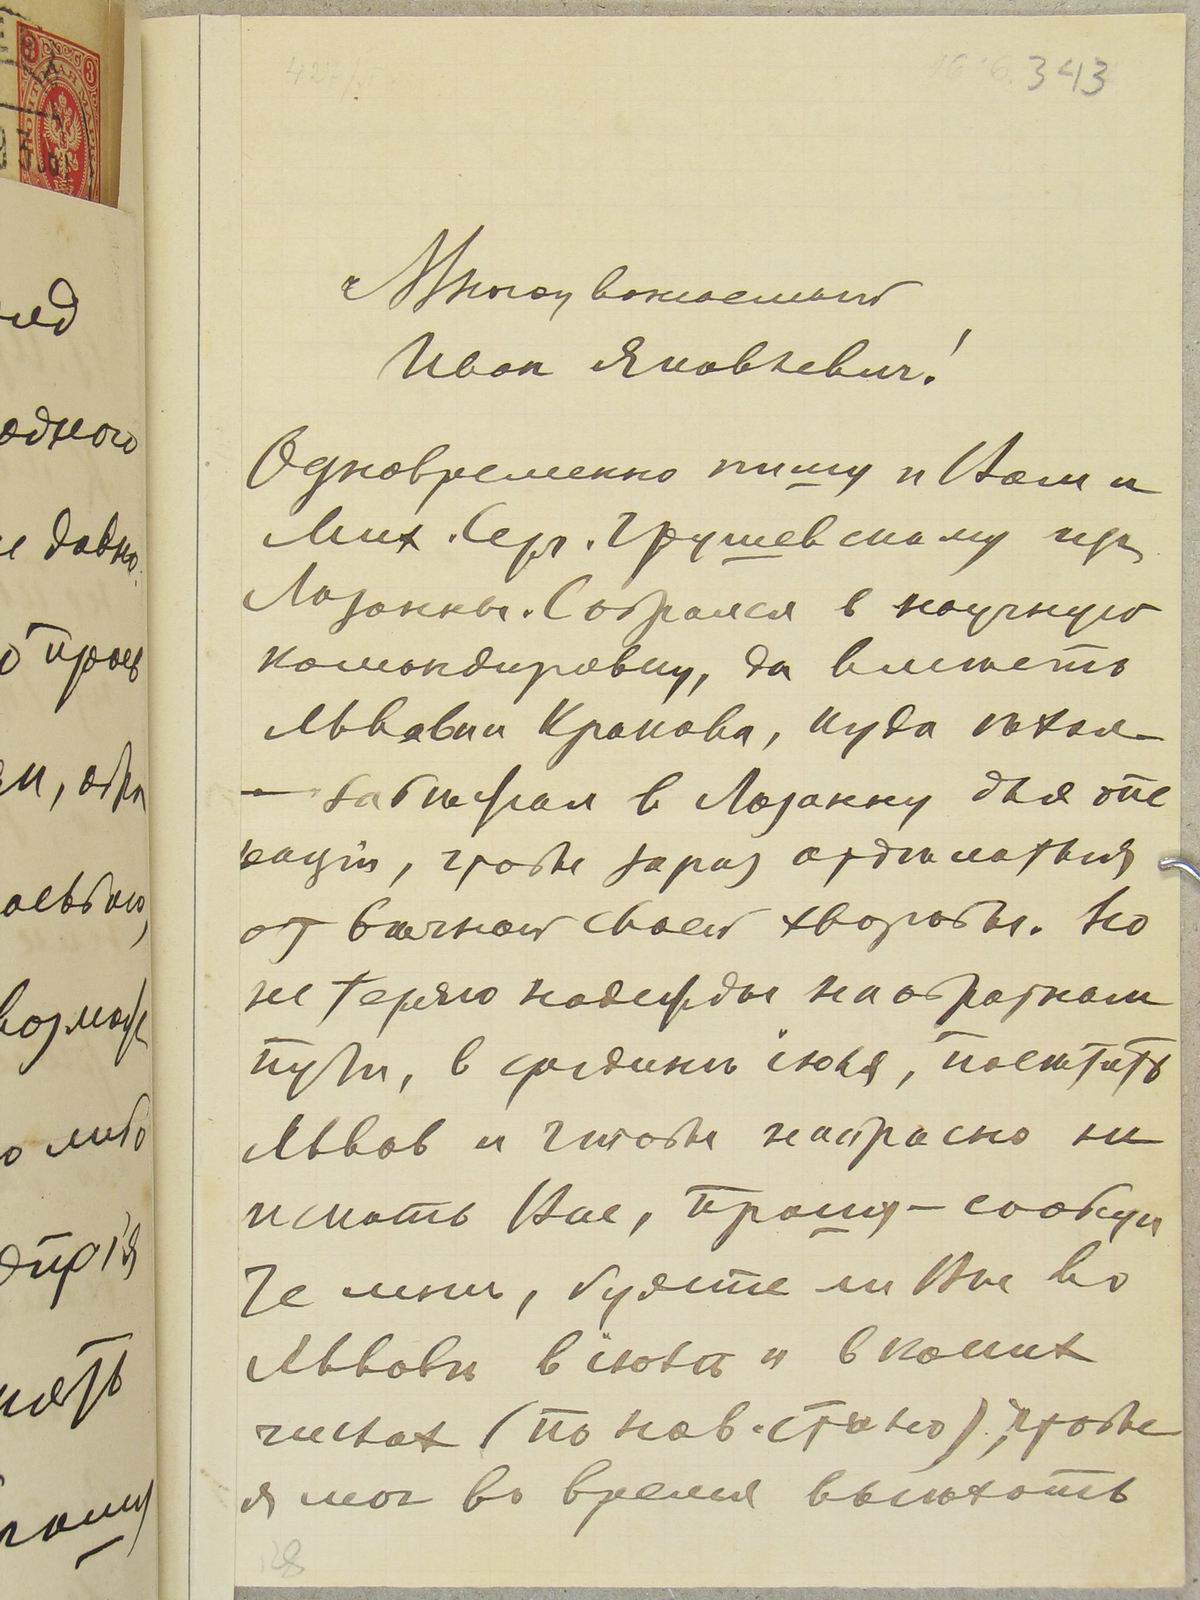 343
Многоуважаемый
Иван Яковлевич!
Одновременно пишу и Вам и
Мих. Серг. Грушевскому из
Лозанны. Собрался в научную
командировку, да вместо
Львова и Кракова, куда ехал
— забежал в Лозанну для опе
рации, чтобы зараз отделаться
от вечной своей хворобы. Но
не теряю надежды на обратном
пути, в средине июля, посетить
Львов и чтобы напрасно не
искать Вас, прошу — сообщи
те мне, будете ли Вы во
Львове в июле и в каких
числах (по нов. стилю), чтобы
я мог во время выехать
128
одного
давно
прош
м, обра
возмож
либо